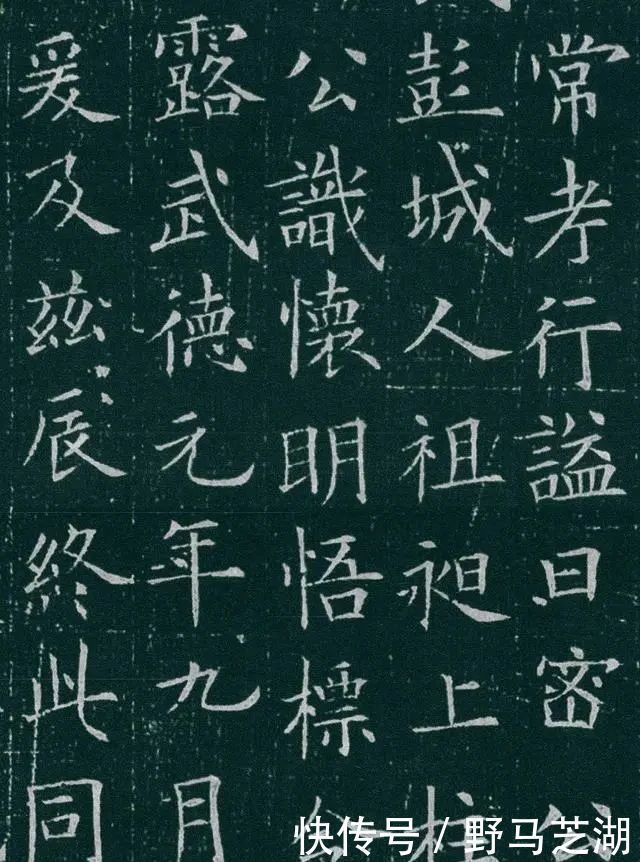 常考行謚曰密
彭城人祖昶上柱
公識懷明悟標
露武德元年九月
爰及茲辰終此同
快传号/野马芝湖